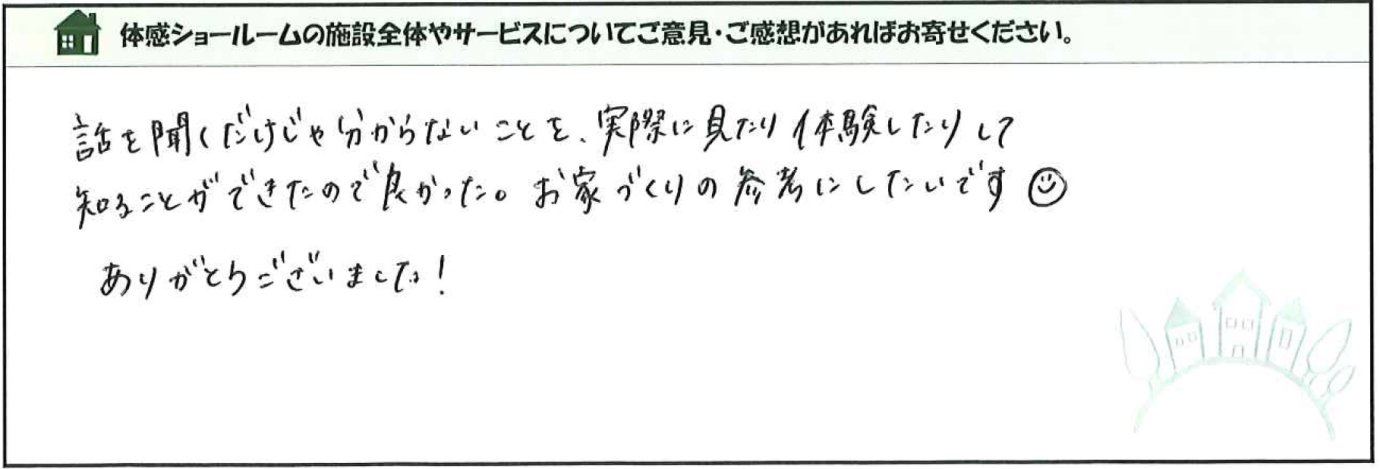 体感ショールームの施設全体やサービスについてご意見・ご感想があればお寄せください。
話を聞くだけじゃ分からないことを、実際に見たり体験したりして
知ることができたので良かった。お家づくりの参考にしたいです☺
ありがとうございました!